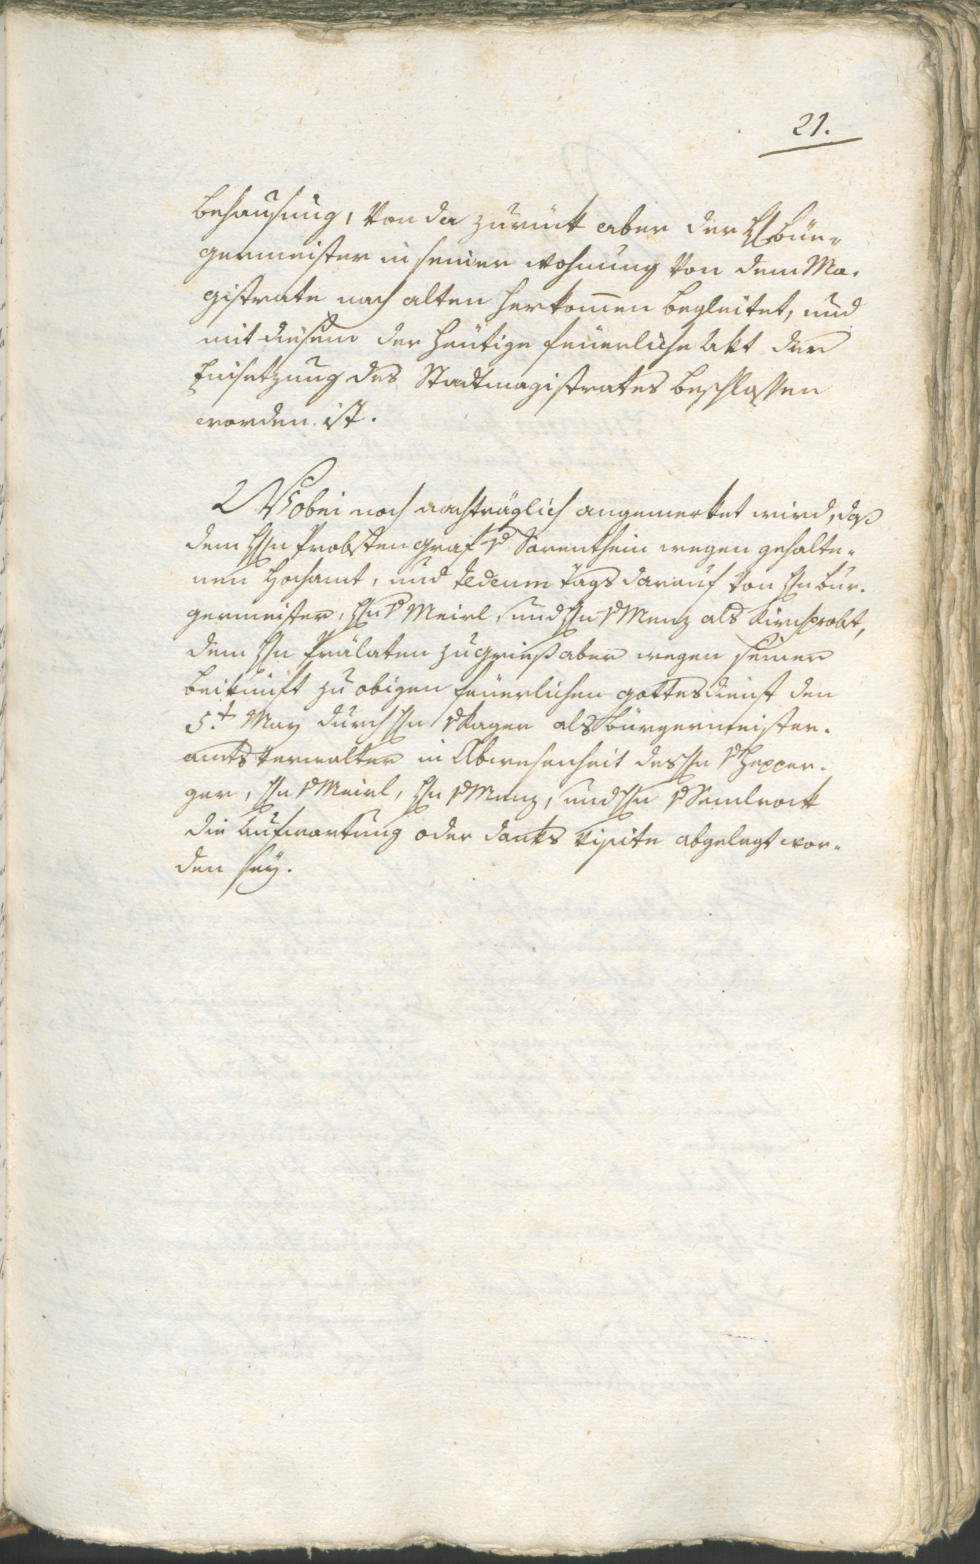 21.
Behausung, von da zurück aber der H Bür-
germeister in seiner wohnung von dem Ma-
gistrate nach alten herkom̄en begleitet, und
mit diesem der heütige feüerliche Akt der
Einsetzung des Stadtmagistrates beschlossen
worden ist.
Wobei noch nachträglich angemerket wird, daß
dem Hn Probsten Graf v Sarenthein wegen gehalte-
nen Hochamt, und tedeum tags darauf von Hn Bür-
germeister, Hn v Meirl, und Hn v Menz als Kirchprobst,
dem Hn Prälaten zu Grieß aber wegen seiner
beikunft zu obigen feüerlichen gottesdienst den
5t May durch Hn v Kager als Bürgermeister-
amts Verwalter in Abwesenheit des Hn v Hepper-
ger, Hn v Meirl, Hn v Menz, und Hn v Semlrock
die Aufwartung oder danks visite abgelegt wor-
den sey.